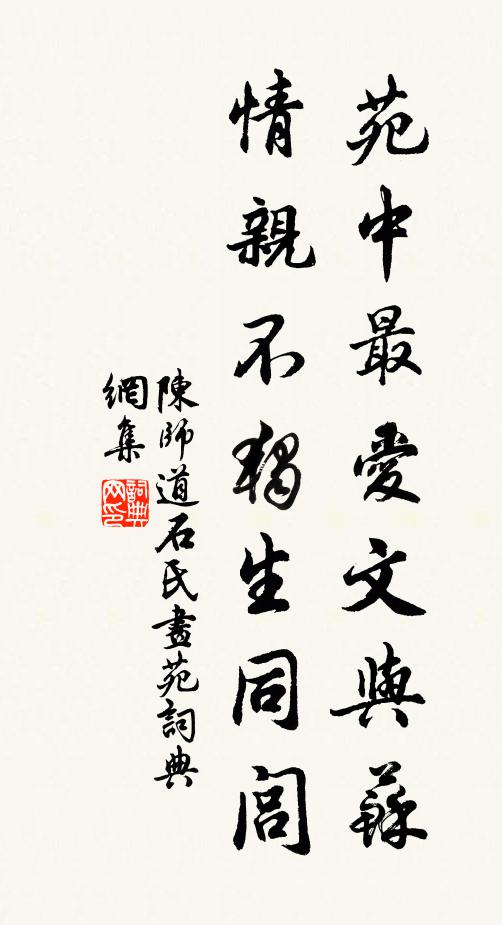 苑中最愛文與蘇
情親不獨生同閭
陳師道石氏畫苑詞典
網集
詞典
网印